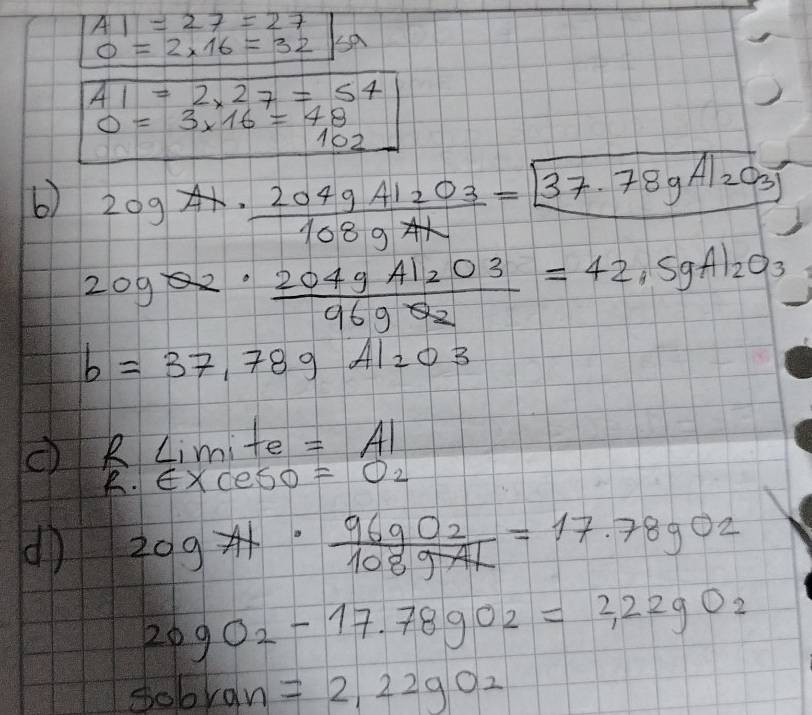 Al = 27 = 27
O = 2x16 = 32
Al = 2x27 = 54
O = 3x16 = 48
102
b) 20g Al . 204g Al2O3 / 108g Al = 37.78g Al2O3
20g O2 . 204g Al2O3 / 96g O2 = 42,5g Al2O3
b = 37,78g Al2O3
c) R Limite = Al
R. Exceso = O2
d) 20g Al . 96g O2 / 108g Al = 17.78g O2
20g O2 - 17.78g O2 = 2,22g O2
sobran = 2,22g O2